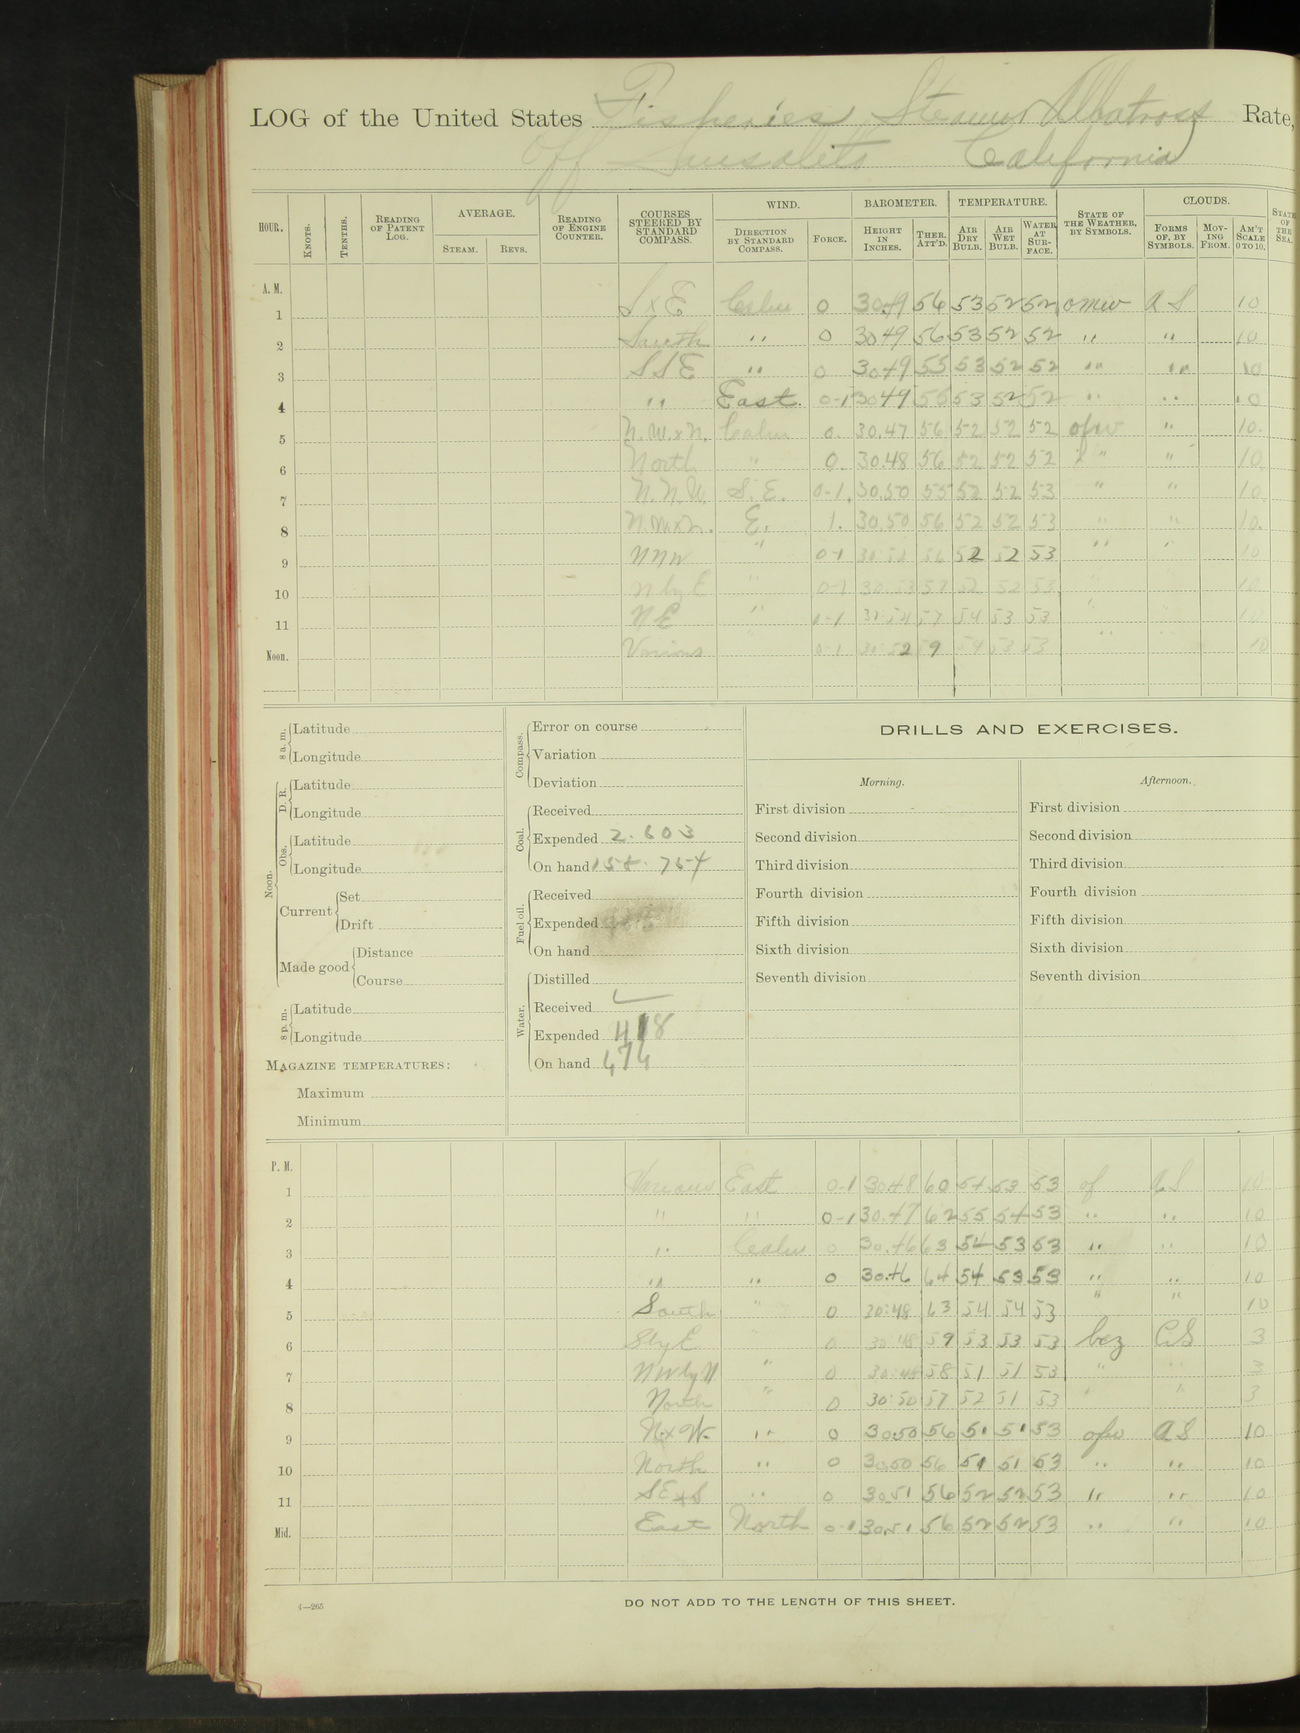 LOG of the United States Fisheries Steamer Albatross Rate,
Off Sausalito California
HOUR. KNOTS. TENTHS. READING OF PATENT LOG. AVERAGE. STEAM. REVS. READING OF ENGINE COUNTER. COURSES STEERED BY STANDARD COMPASS. WIND. DIRECTION BY STANDARD COMPASS. FORCE. BAROMETER. HEIGHT IN INCHES. THER. ATT'D. TEMPERATURE. AIR DRY BULB. AIR WET BULB. WATER AT SURFACE. STATE OF THE WEATHER, BY SYMBOLS. CLOUDS. FORMS OF, BY SYMBOLS. MOVING FROM. AM'T SCALE 0 TO 10. STATE OF THE SEA.
A. M.
1 SxE Calm 0 30.49 56 53 52 52 omw AS 10
2 South " 0 30.49 56 53 52 52 " " 10
3 SSE " 0 30.49 55 53 52 52 " " 10
4 " East 0-1 30.49 55 53 52 52 " " 10
5 N.W.xN. Calm 0. 30.47 56 52 52 52 ofw " 10.
6 North " 0. 30.48 56 52 52 52 " " 10.
7 N.N.W. S.E. 0-1. 30.50 55 52 52 53 " " 10.
8 N.W.xN. E. 1. 30.50 56 52 52 53 " " 10.
9 NNW " 0-1 30.52 56 52 52 53 " " 10
10 N by E " 0-1 30.53 57 52 52 53 10
11 NE " 0-1 30.54 57 54 53 53 10
Noon. Various 0-1 30.52 59 54 53 53 " 10
8 a. m. Latitude
Longitude
Noon. D. R. Latitude
Longitude
Obs. Latitude
Longitude
Current Set
Drift
Made good Distance
Course
8 p. m. Latitude
Longitude
MAGAZINE TEMPERATURES:
Maximum
Minimum
Compass. Error on course
Variation
Deviation
Coal. Received
Expended 2.603
On hand 158.754
Fuel oil. Received
Expended
On hand
Water. Distilled
Received
Expended 418
On hand
DRILLS AND EXERCISES.
Morning.
First division
Second division
Third division
Fourth division
Fifth division
Sixth division
Seventh division
Afternoon.
First division
Second division
Third division
Fourth division
Fifth division
Sixth division
Seventh division
P. M.
1 Various East 0-1 30.48 60 54 53 53 of AS 10
2 " " 0-1 30.47 62 55 54 53 " " 10
3 " Calm 0 30.46 63 54 53 53 " " 10
4 " " 0 30.46 64 54 53 53 " " 10
5 South " 0 30.48 63 54 54 53 " " 10
6 S by E " 0 30.48 59 53 53 53 bcz CS 3
7 NW by N " 0 30.48 58 51 51 53 " " 3
8 North " 0 30.50 57 52 51 53 " " 3
9 NxW. " 0 30.50 56 51 51 53 ofw AS 10
10 North " 0 30.50 56 51 51 53 " " 10
11 SExS " 0 30.51 56 52 52 53 " " 10
Mid. East North 0-1 30.51 56 52 52 53 " " 10
4—265
DO NOT ADD TO THE LENGTH OF THIS SHEET.